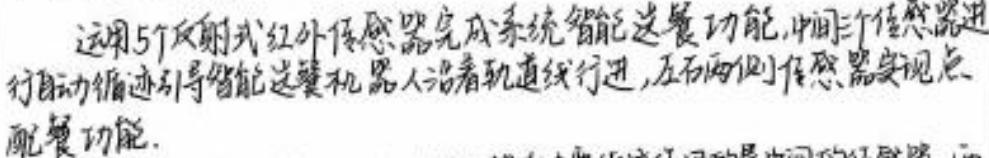 运用5个反射式红外传感器完成系统智能送餐功能,中间三个传感器进
行自动循迹引导智能送餐机器人沿着轨道线行进,左右两侧传感器实现点
配餐功能.